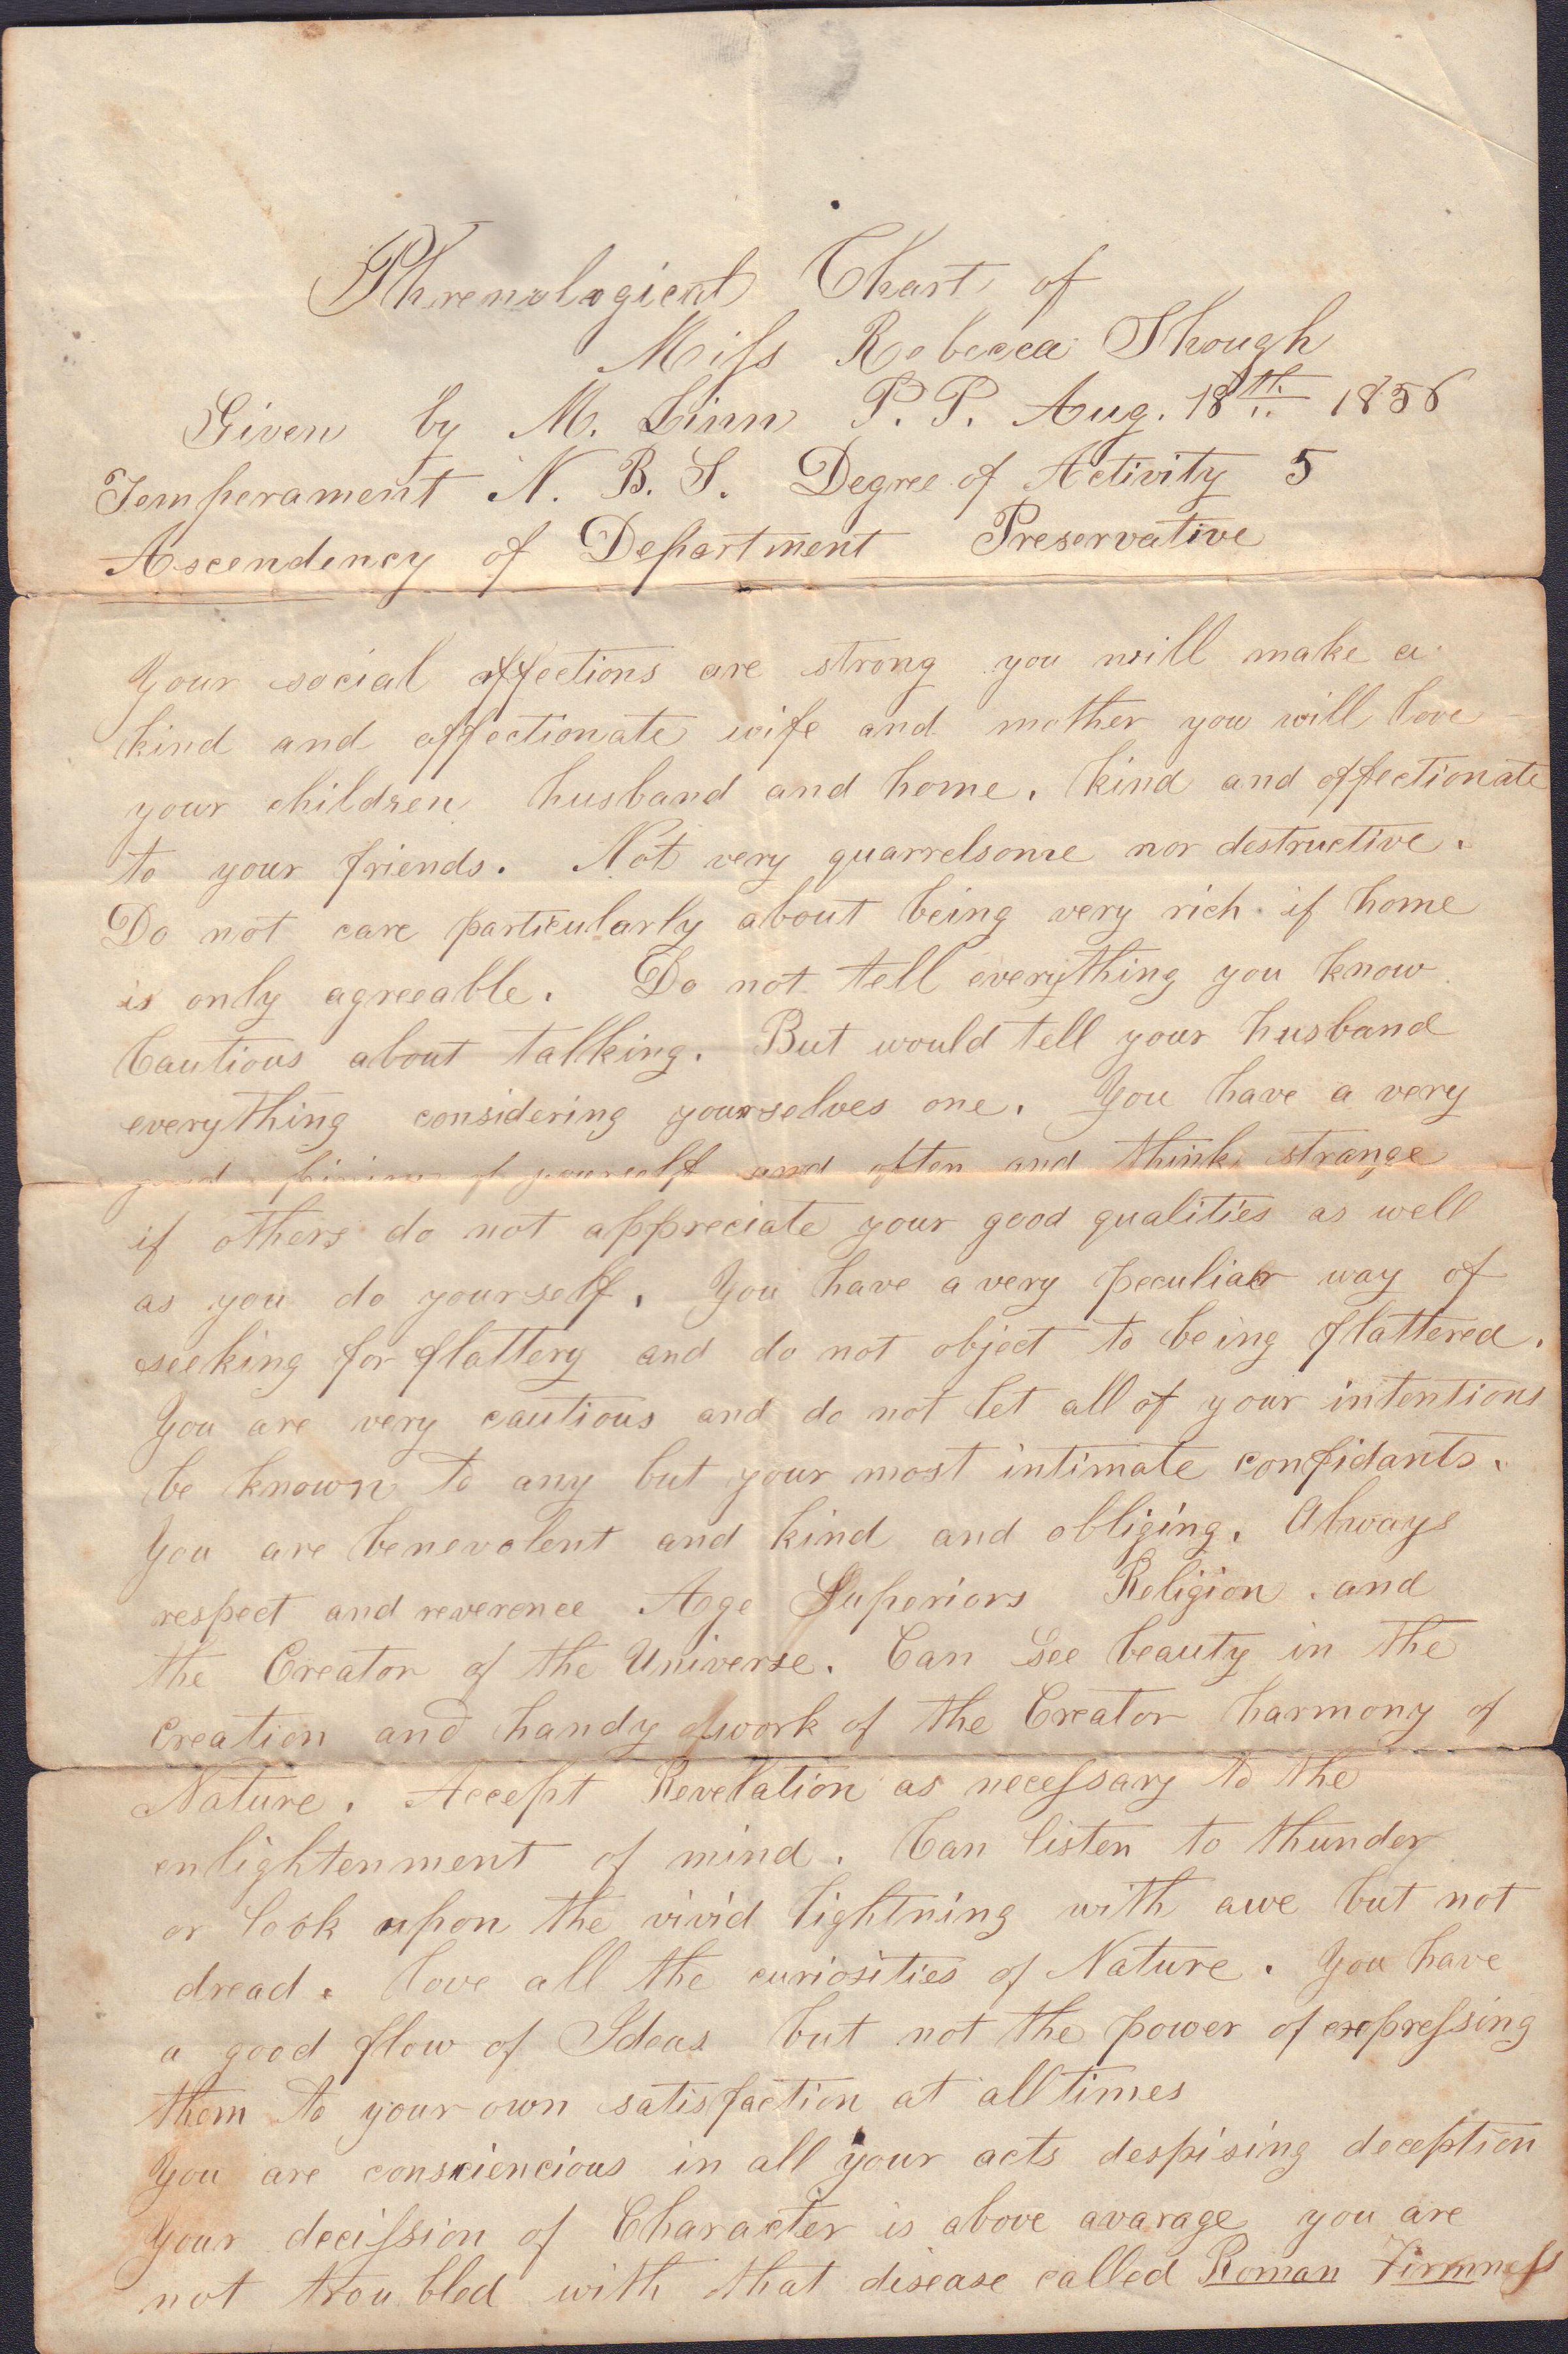 Phrenological Chart of
Miss Rebecca Shough
Given by M. Linn P. P. Aug. 18th 1856
Temperament N. B. S. Degree of Activity 5
Ascendency of Department Preservative
Your social affections are strong you will make a
kind and affectionate wife and mother you will love
your children husband and home. kind and affectionate
to your friends. Not very quarrelsome nor destructive.
Do not care particularly about being very rich if home
is only agreeable. Do not tell everything you know
Cautious about talking. But would tell your husband
everything considering yourselves one. You have a very
good opinion of yourself and often and think strange
if others do not appreciate your good qualities as well
as you do yourself. You have a very peculiar way of
seeking for flattery and do not object to being flattered.
You are very cautious and do not let all of your intentions
be known to any but your most intimate confidants.
You are benevolent and kind and obliging. Always
respect and reverence Age Superiors Religion and
the Creator of the Universe. Can see beauty in the
Creation and handy work of the Creator harmony of
Nature. Accept Revelation as necessary to the
enlightenment of mind. Can listen to thunder
or look upon the vivid lightning with awe but not
dread. love all the curiosities of Nature. You have
a good flow of Ideas but not the power of expressing
them to your own satisfaction at all times
You are consciencious in all your acts despising deception
Your decission of Character is above avarage you are
not troubled with that disease called Roman Firmness